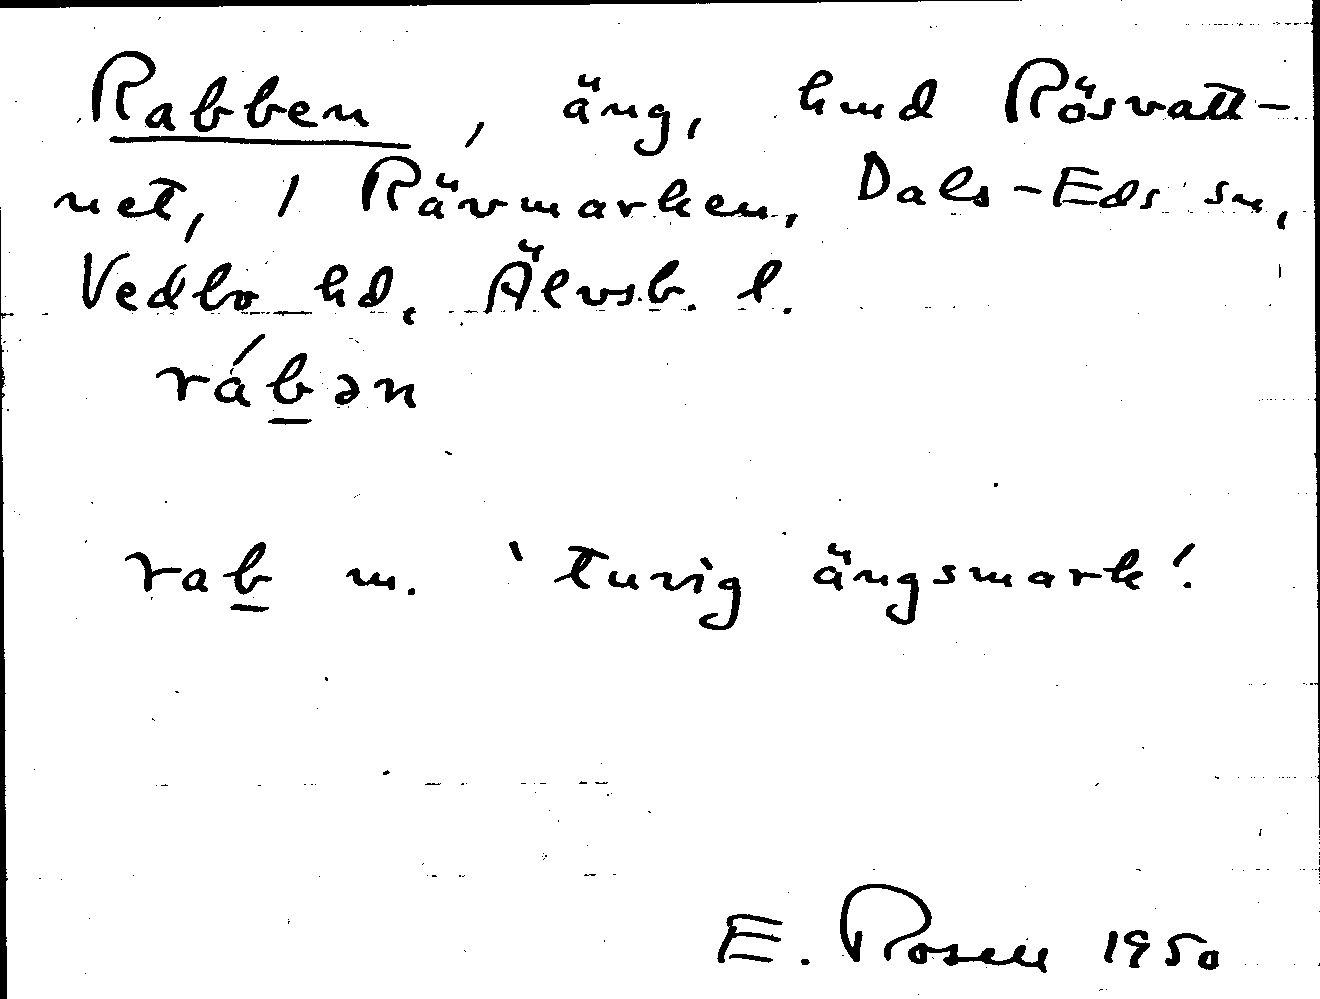 Rabben, äng, hmd Rösvatt-
net, 1 Rävmarken, Dals-Eds sn,
Vedbo hd, Älvsb. l.
rábən
rab m. 'tuvig ängsmark'.
E. Rosell 1950